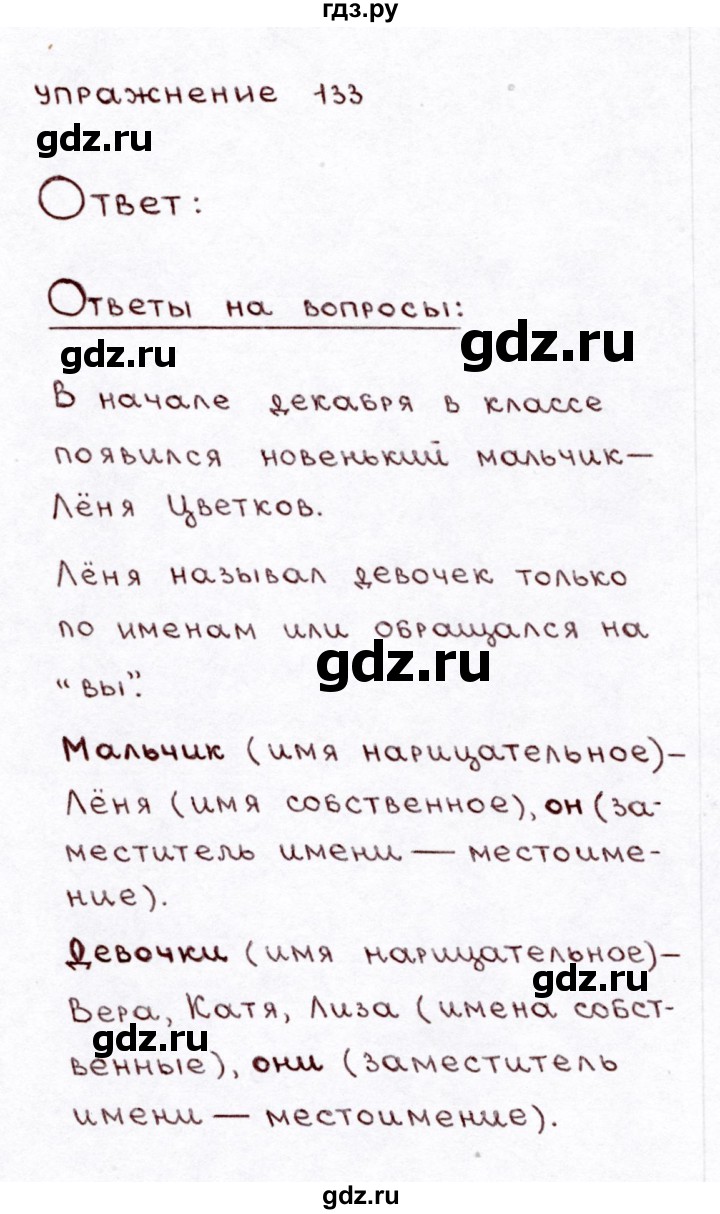 гдз.ру
упражнение 133
gdz.ru
Ответ:
Ответы на вопросы:
gdz.ru
gdz.ru
В начале декабря в классе
появился новенький мальчик—
Лёня Цветков.
Лёня называл девочек только
по именам или обращался на
gdz.ru
"вы".
Мальчик (имя нарицательное)–
Лёня (имя собственное), он (за-
меститель имени — местоиме-
ние).
Девочки (имя нарицательное)–
gdz.ru
Вера, Катя, Лиза (имена собст-
gdz.ru
венные), они (заместитель
имени — местоимение).
gdz.ru